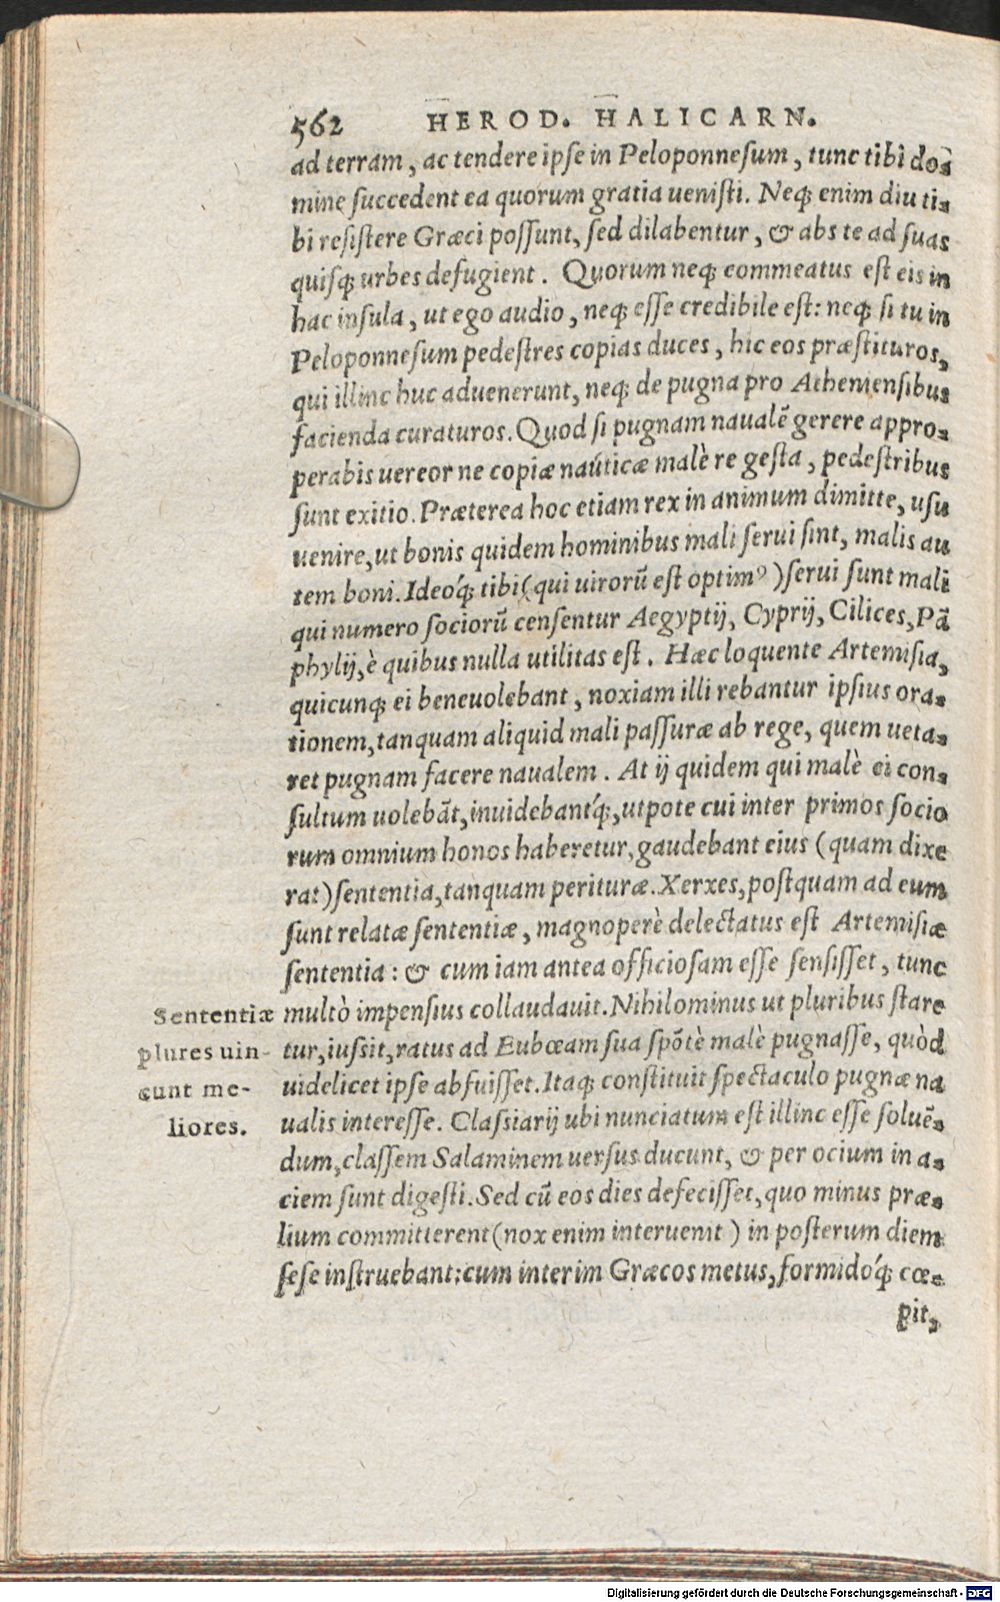 562 HEROD. HALICARN.
ad terram, ac tendere ipſe in Peloponneſum, tunc tibi do-
mine ſuccedent ea quorum gratia ueniſti. Neq; enim diu ti-
bi reſiſtere Græci poſſunt, ſed dilabentur, & abs te ad ſuas
quiſq; urbes defugient. Quorum neq; commeatus eſt eis in
hac inſula, ut ego audio, neq; eſſe credibile eſt: neq; ſi tu in
Peloponneſum pedeſtres copias duces, hic eos præſtituros,
qui illinc huc aduenerunt, neq; de pugna pro Athenienſibus
facienda curaturos. Quod ſi pugnam naualẽ gerere appro-
perabis uereor ne copiæ nauticæ malè re geſta, pedeſtribus
ſunt exitio. Præterea hoc etiam rex in animum dimitte, uſu
uenire, ut bonis quidem hominibus mali ſerui ſint, malis au
tem boni. Ideoq́; tibi (qui uirorũ eſt optimꝰ) ſerui ſunt mali
qui numero ſociorũ cenſentur Aegyptij, Cyprij, Cilices, Pã
phylij, è quibus nulla utilitas eſt. Hæc loquente Artemiſia,
quicunq; ei beneuolebant, noxiam illi rebantur ipſius ora-
tionem, tanquam aliquid mali paſſuræ ab rege, quem ueta-
ret pugnam facere naualem. At ij quidem qui malè ei con-
ſultum uolebãt, inuidebantq́;, utpote cui inter primos ſocio
rum omnium honos haberetur, gaudebant eius (quam dixe
rat) ſententia, tanquam perituræ. Xerxes, poſtquam ad eum
ſunt relatæ ſententiæ, magnoperè delectatus eſt Artemiſiæ
ſententia: & cum iam antea officioſam eſſe ſenſiſſet, tunc
multò impenſius collaudauit. Nihilominus ut pluribus ſtare
tur, iuſsit, ratus ad Eubœam ſua ſpõtè malè pugnaſſe, quòd
uidelicet ipſe abfuiſſet. Itaq; conſtituit ſpectaculo pugnæ na
ualis intereſſe. Claſsiarij ubi nunciatum eſt illinc eſſe ſoluẽ-
dum, claſſem Salaminem uerſus ducunt, & per ocium in a-
ciem ſunt digeſti. Sed cũ eos dies defeciſſet, quo minus præ-
lium committerent (nox enim interuenit) in poſterum diem
ſeſe inſtruebant: cum interim Græcos metus, formidoq́; cœ-
pit,
Sententiæ
plures uin-
cunt me-
liores.
Digitalisierung gefördert durch die Deutsche Forschungsgemeinschaft - DFG